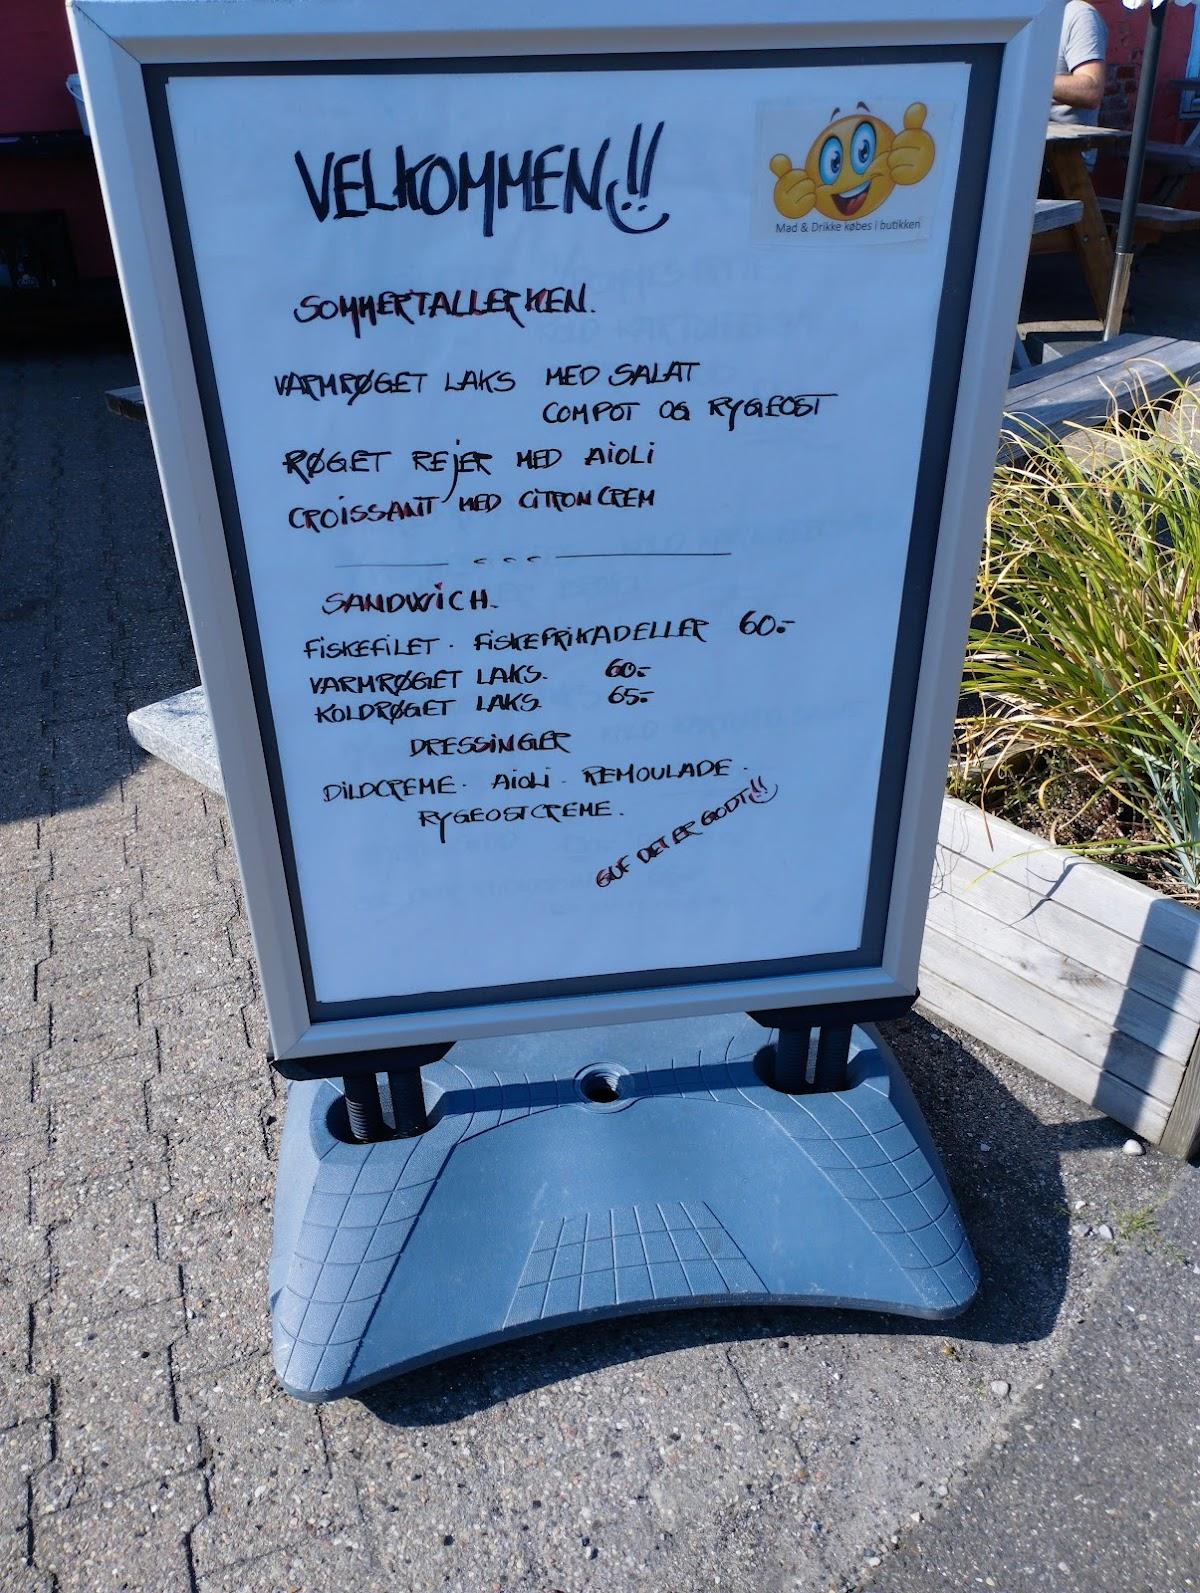 VELKOMMEN!!
Mad & Drikke købes i butikken
SOMMERTALLERKEN.
VARMRØGET LAKS MED SALAT
COMPOT OG RYGEOST
RØGET REJER MED AIOLI
CROISSANT MED CITRONCREM
SANDWICH.
FISKEFILET. FISKEFRIKADELLER 60.-
VARMRØGET LAKS. 60.-
KOLDRØGET LAKS. 65.-
DRESSINGER
DILDCREME. AIOLI. REMOULADE.
RYGEOSTCREME.
GUF DET ER GODT!!